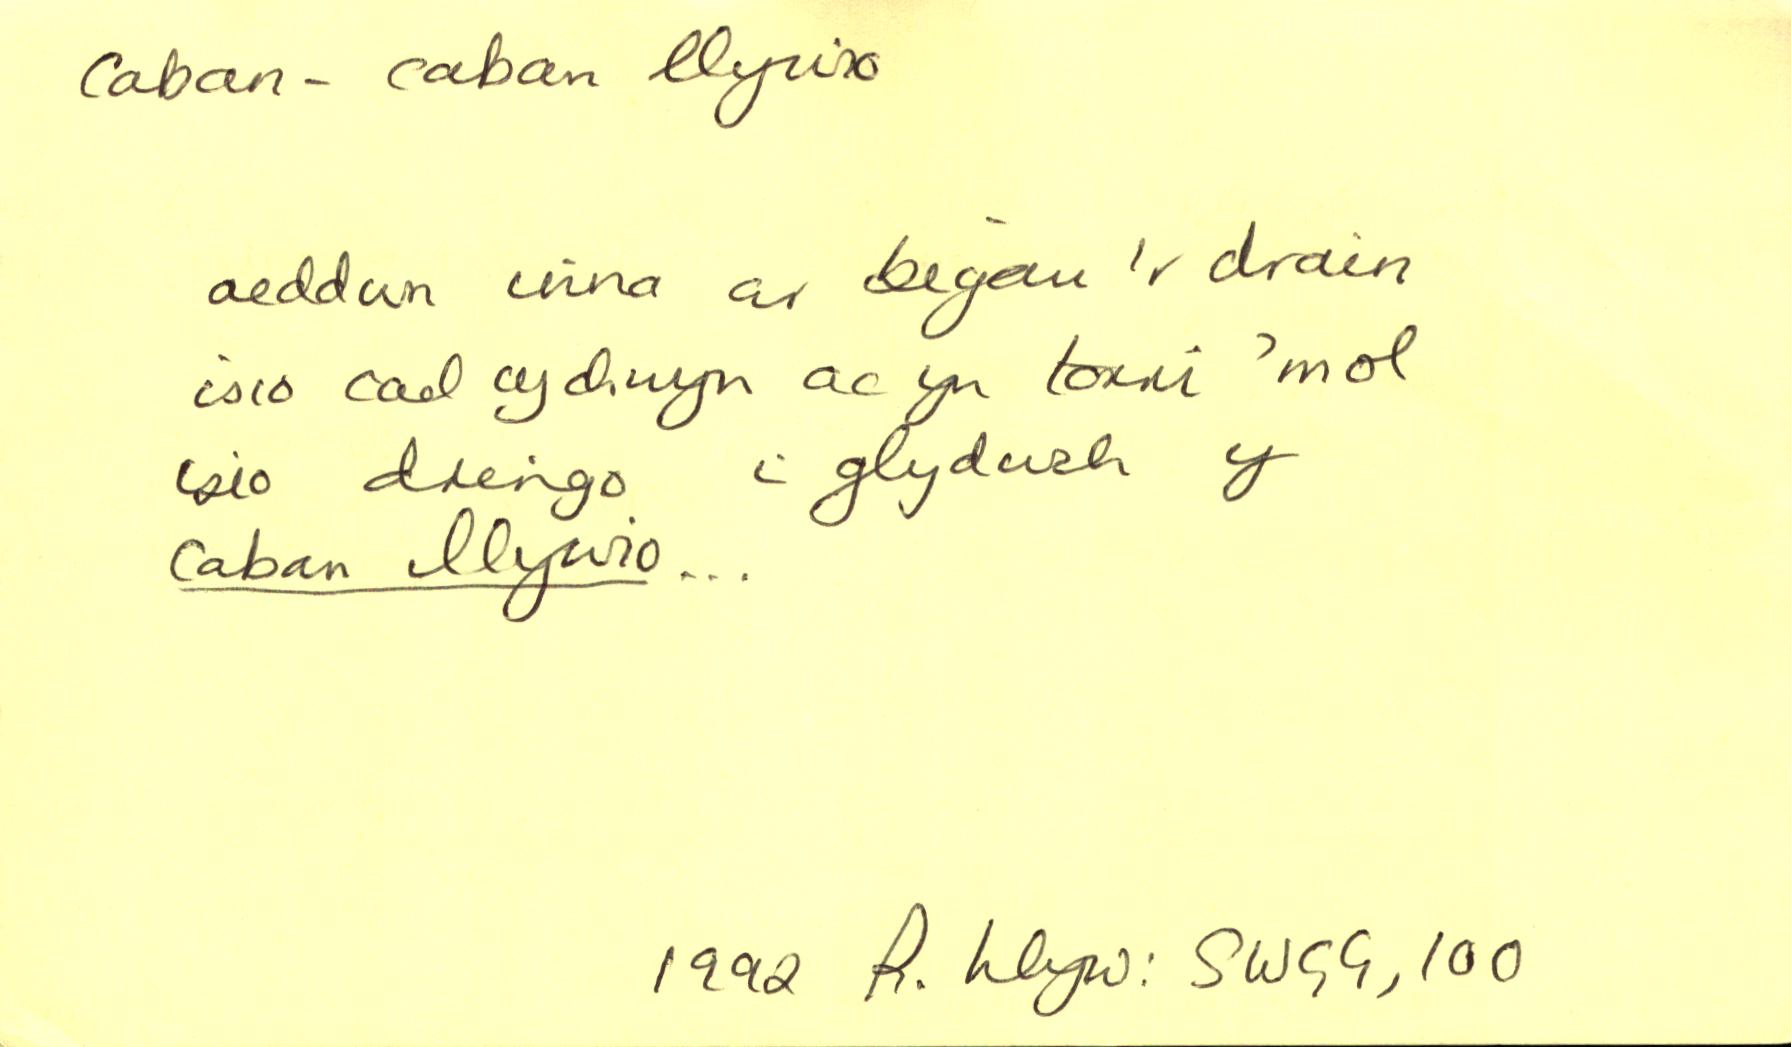 Caban - caban llywio
oeddwn inna ar begau'r drain
isio cael cychwyn ac yn torri 'mol
isio dringo i glydwch y
caban llywio...
1992 R. Llyw: SWGG, 100